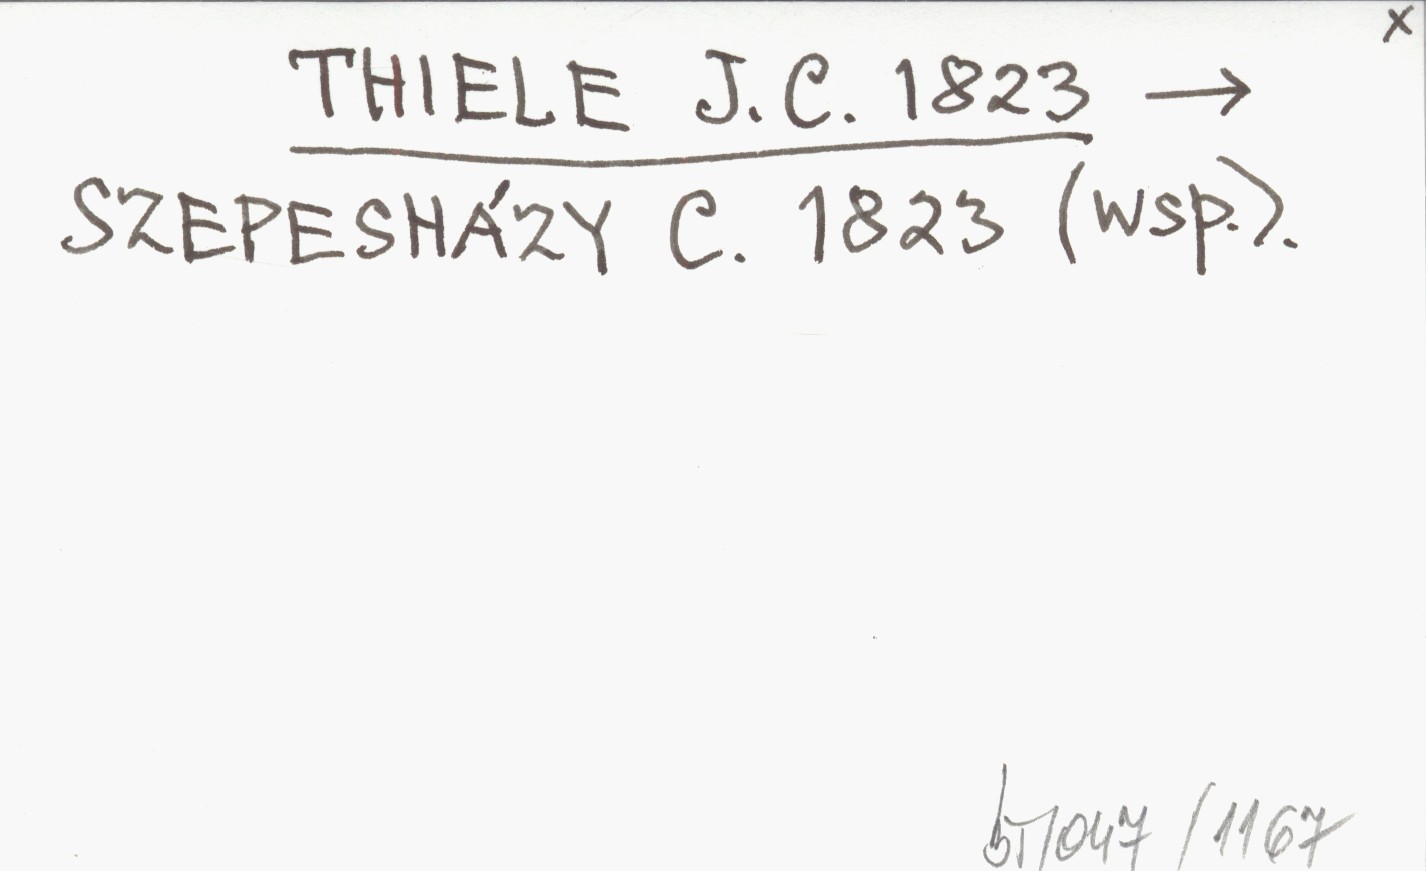 x
THIELE J.C. 1823 →
SZEPESHÁZY C. 1823 (wsp.).
/047 /1167